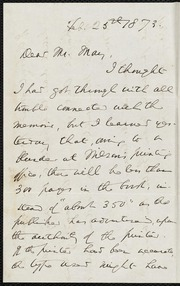 Feb. 25th 1873.
Dear Mr. May,
I thought
I had got through with all
trouble connected with the
memoir, but I learned yes-
terday that, owing to a
blunder at Wilson's printing
office, there will be less than
300 pages in the book, in-
stead of "about 350" as the
publisher has advertised, upon
the authority of the printer.
If the printer had been accurate
the type used might have